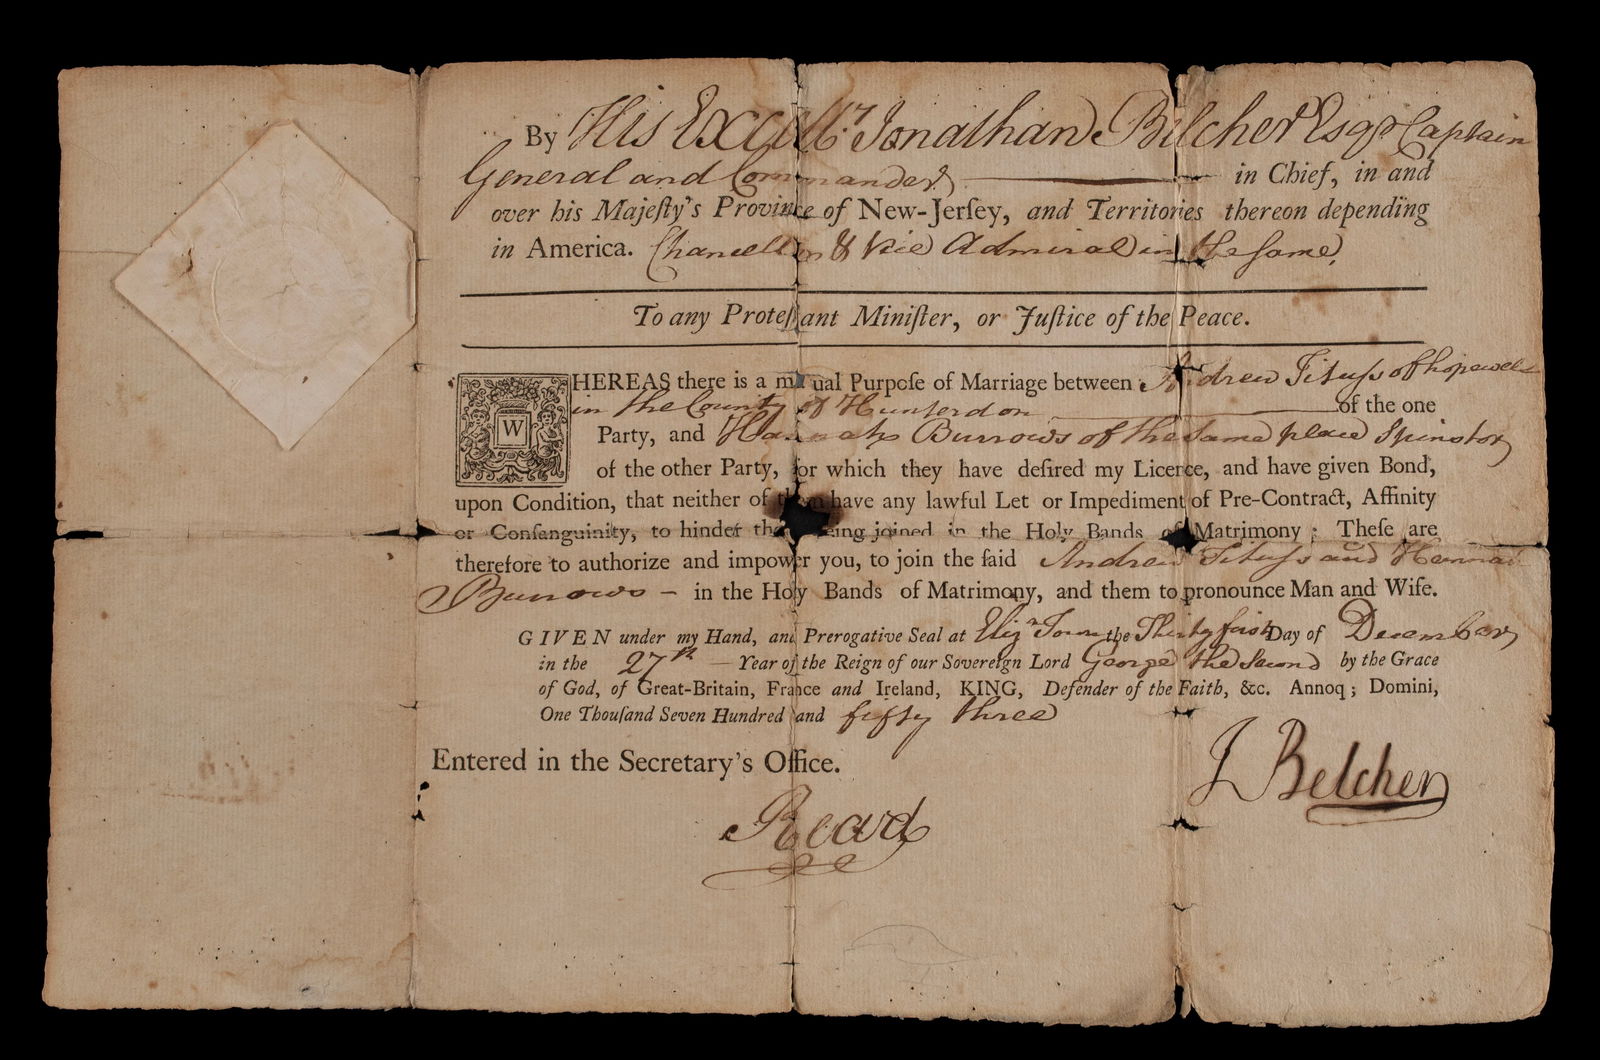 By His Excell.y Jonathan Belcher Esqr Captain
General and Commander in Chief, in and
over his Majeſty's Province of New-Jerſey, and Territories thereon depending
in America. Chancellor & Vice Admiral in the ſame.
To any Proteſtant Miniſter, or Juſtice of the Peace.
WHEREAS there is a mutual Purpoſe of Marriage between Andrew Tituſs of hopewell
in the County of Hunterdon of the one
Party, and Hannah Burrows of the Same place Spinstor
of the other Party, for which they have deſired my Licence, and have given Bond,
upon Condition, that neither of them have any lawful Let or Impediment of Pre-Contract, Affinity
or Conſanguinity, to hinder their being joined in the Holy Bands of Matrimony : Theſe are
therefore to authorize and impower you, to join the ſaid Andrew Tituſs and Hannah
Burrows – in the Holy Bands of Matrimony, and them to pronounce Man and Wife.
GIVEN under my Hand, and Prerogative Seal at Elizn Town the Thirty first Day of December
in the 27th — Year of the Reign of our Sovereign Lord George the Second by the Grace
of God, of Great-Britain, France and Ireland, KING, Defender of the Faith, &c. Annoq; Domini,
One Thouſand Seven Hundred and fifty three
Entered in the Secretary's Office.
J Belcher
Read